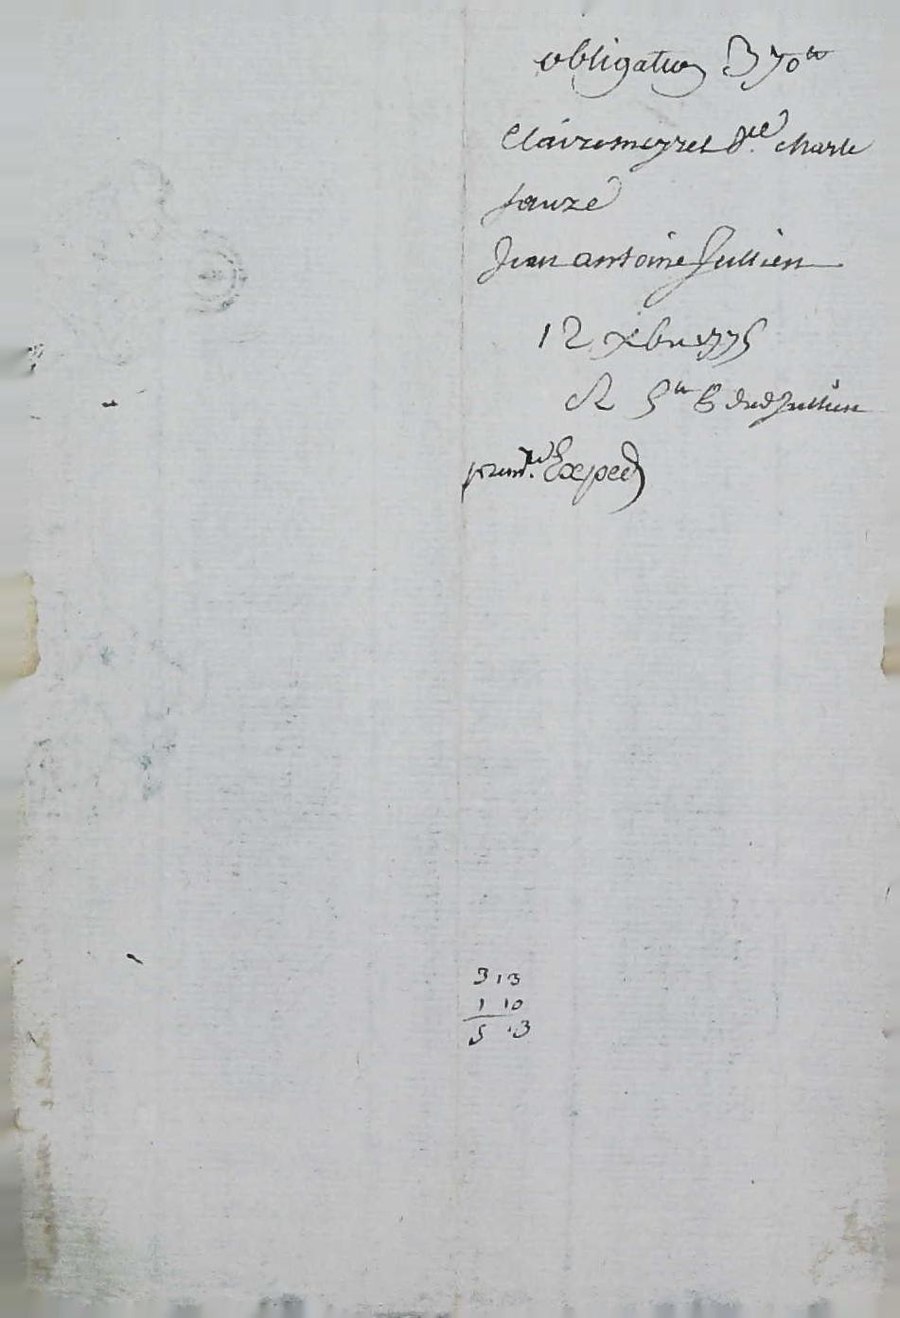 obligation 370 ₶
Claire meyret d.lle charle
sauze
Jean antoine Jullien
12 xbre 1775
R 5 ₶ dud Jullien
prem.re Exped
3 13
1 10
5 3